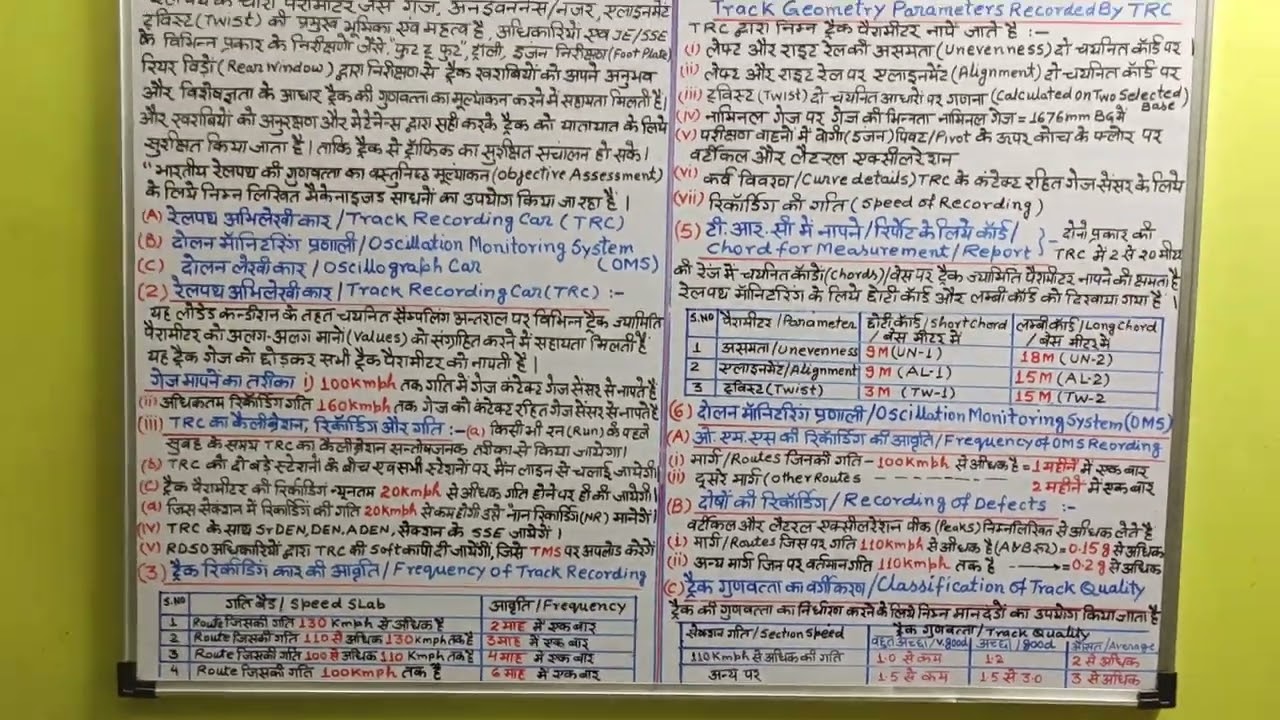 रेलपथ के चारो पैरामीटर जैसे गेज, अनइवननेस/नजर, एलाइनमेंट
ट्विस्ट(Twist) की प्रमुख भूमिका एंव महत्व है, अधिकारियों एंव JE/SSE
के विभिन्न प्रकार के निरीक्षणों जैसे, फुट टू फुट, ट्रॉली, इंजन निरीक्षण(Foot Plate)
रियर विंडो(Rear Window) द्वारा निरीक्षण से ट्रैक खराबियों को अपने अनुभव
और विशेषज्ञता के आधार ट्रैक की गुणवत्ता का मूल्यांकन करने में सहायता मिलती है।
और खराबियों को अनुरक्षण और मेंटेनेन्स द्वारा सही करके ट्रैक को यातायात के लिये
सुरक्षित किया जाता है। ताकि ट्रैक से ट्रॉफिक का सुरक्षित संचालन हो सके।
"भारतीय रेलपथ की गुणवत्ता का वस्तुनिष्ठ मूल्यांकन(Objective Assessment)
के लिये निम्न लिखित मैकेनाइजड साधनों का उपयोग किया जा रहा है।
(A) रेलपथ अभिलेखी कार/Track Recording Car (TRC)
(B) दोलन मॉनिटरिंग प्रणाली/Oscillation Monitoring System
(C) दोलन लेखी कार/Oscillograph Car (OMS)
(2) रेलपथ अभिलेखी कार/Track Recording Car(TRC) :-
यह लोडेड कन्डीशन के तहत चयनित सैम्पलिंग अन्तराल पर विभिन्न ट्रैक ज्यामिति
पैरामीटर को अलग-अलग मानो(Values) को संग्रहित करने में सहायता मिलती है
यह ट्रैक गेज को छोड़कर सभी ट्रैक पैरामीटर को नापती है।
गेज मापने का तरीका i) 100Kmph तक गति में गेज कंटेक्ट गेज सेंसर से नापते है
(ii) अधिकतम रिकॉर्डिंग गति 160kmph तक गेज को कंटेक्ट रहित गेज सेंसर से नापते है
(iii) TRC का कैलीब्रेशन, रिकॉर्डिंग और गति :- (a) किसी भी रन(Run) के पहले
सुबह के समय TRC का कैलीब्रेशन सन्तोषजनक तरीका से किया जायेगा।
(b) TRC को दो बड़े स्टेशनों के बीच एंव सभी स्टेशनों पर मेन लाइन से चलाई जायेगी।
(C) ट्रैक पैरामीटर की रिकॉर्डिंग न्यूनतम 20Kmph से अधिक गति होने पर ही की जायेगी।
(d) जिस सेक्शन में रिकॉर्डिंग की गति 20Kmph से कम होगी उसे नॉन रिकॉर्डिंग(NR) मानेगें।
(iv) TRC के साथ SrDEN, DEN, ADEN, सेक्शन के SSE जायेगें।
(v) RDSO अधिकारियों द्वारा TRC की Soft कापी दी जायेगी, जिसे TMS पर अपलोड करेगें
(3) ट्रैक रिकॉर्डिंग कार की आवृति/Frequency of Track Recording
S.NO गति बैंड/Speed Slab आवृति/Frequency
1 Route जिसकी गति 130 Kmph से अधिक है 2 माह में एक बार
2 Route जिसकी गति 110 से अधिक 130Kmph तक है 3 माह में एक बार
3 Route जिसकी गति 100 से अधिक 110 Kmph तक है 4 माह में एक बार
4 Route जिसकी गति 100Kmph तक है 6 माह में एक बार
Track Geometry Parameters Recorded By TRC
TRC द्वारा निम्न ट्रैक पैरामीटर नापे जाते है :-
(i) लेफ्ट और राइट रेल की असमता(Unevenness) दो चयनित कॉर्ड पर।
(ii) लेफ्ट और राइट रेल पर एलाइनमेंट(Alignment) दो चयनित कॉर्ड पर
(iii) ट्विस्ट(Twist) दो चयनित आधारों पर गणना(Calculated on Two Selected) Base
(iv) नॉमिनल गेज पर गेज की भिन्नता नॉमिनल गेज = 1676mm BG में
(v) परीक्षण वाहनों में बोगी(इंजन)पिवट/Pivot के ऊपर कोच के फ्लोर पर
वर्टीकल और लैटरल एक्सीलरेशन
(vi) कर्व विवरण/Curve details) TRC के कंटेक्ट रहित गेज सेंसर के लिये
(vii) रिकॉर्डिंग की गति (Speed of Recording)
(5) टी.आर.सी में नापने/रिर्पोट के लिये कॉर्ड/ Chord for Measurement/Report }- दोनो प्रकार की
TRC में 2 से 20 मी॰
की रेंज में चयनित कॉर्डो(Chords)/बेस पर ट्रैक ज्यामिति पैरामीटर नापने की क्षमता है
रेलपथ मॉनिटरिंग के लिये छोटी कॉर्ड और लम्बी कॉर्ड को दिखाया गया है।
S.NO पैरामीटर/Parameter छोटी कॉर्ड/Short Chord/बेस मीटर में लम्बी कॉर्ड/Long Chord/बेस मीटर में
1 असमता/Unevenness 9M(UN-1) 18M (UN-2)
2 एलाइनमेंट/Alignment 9M (AL-1) 15M (AL-2)
3 ट्विस्ट(Twist) 3M (TW-1) 15M (TW-2
(6) दोलन मॉनिटरिंग प्रणाली/Oscillation Monitoring System(OMS)
(A) ओ.एम.एस की रिकॉर्डिंग की आवृति/Frequency of OMS Reording
(i) मार्ग/Routes जिनकी गति - 100Kmph से अधिक है = 1 महीने में एक बार
(ii) दूसरे मार्ग (Other Routes - - - - - - - - 2 महीने में एक बार
(B) दोषों की रिकॉर्डिंग/ Recording of Defects :-
वर्टीकल और लैटरल एक्सीलरेशन पीक(Peaks) निम्नलिखित से अधिक लेते है
(i) मार्ग/Routes जिस पर गति 110Kmph से अधिक है (A व B रूट) = 0.15g से अधिक
(ii) अन्य मार्ग जिन पर वर्तमान गति 110Kmph तक है ------→ = 0.2g से अधिक
(C) ट्रैक गुणवत्ता का वर्गीकरण/Classification of Track Quality
ट्रैक की गुणवत्ता का निर्धारण करने के लिये निम्न मानदंडो का उपयोग किया जाता है
सेक्शन गति/Section Speed ट्रैक गुणवत्ता/Track Quality
बहुत अच्छा/V.good अच्छा/good औसत/Average
110Kmph से अधिक की गति 1.0 से कम 1.2 2 से अधिक
अन्य पर 1.5 से कम 1.5 से 3.0 3 से अधिक